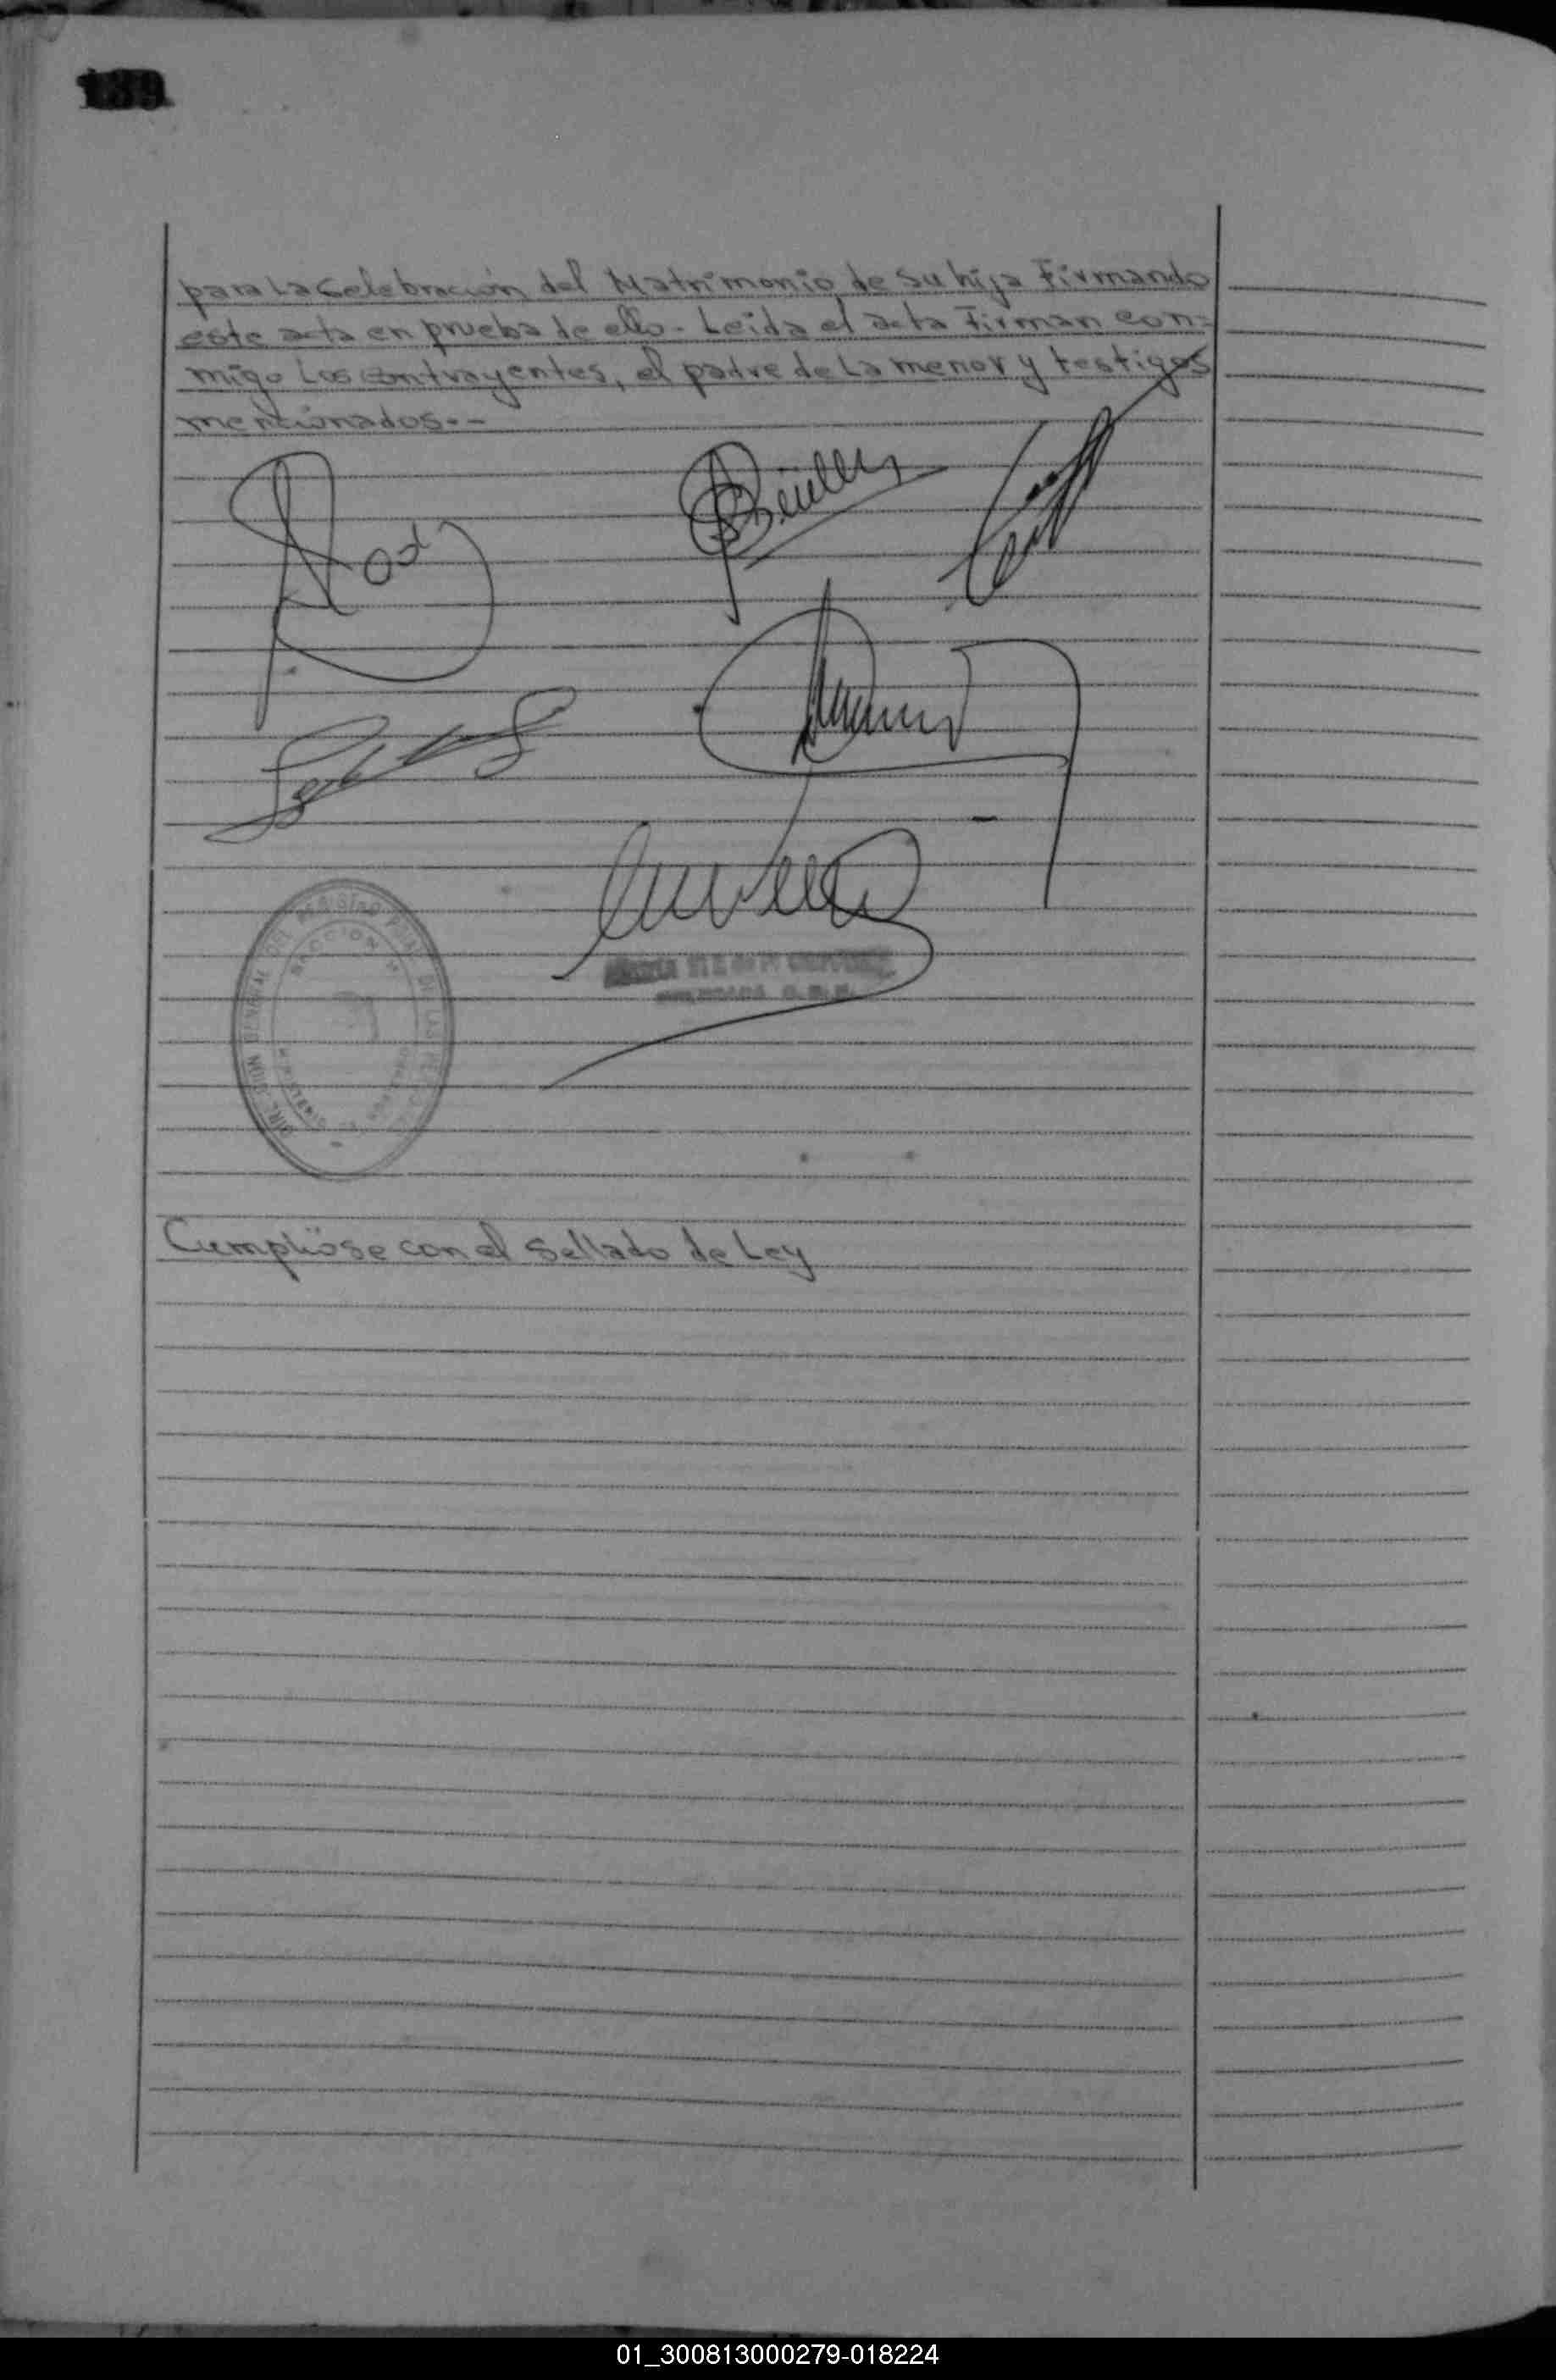 139
para La Celebración del Matrimonio de Su hija Firmando
este acta en prueba de ello - Leida el acta Firman con=
migo Los contrayentes, el padre de La menor y testigos
mencionados.-
DIRECCION GENERAL DEL REGISTRO DE LAS PERSONAS
SECCION
Cumplióse con el Sellado de Ley
01_300813000279-018224